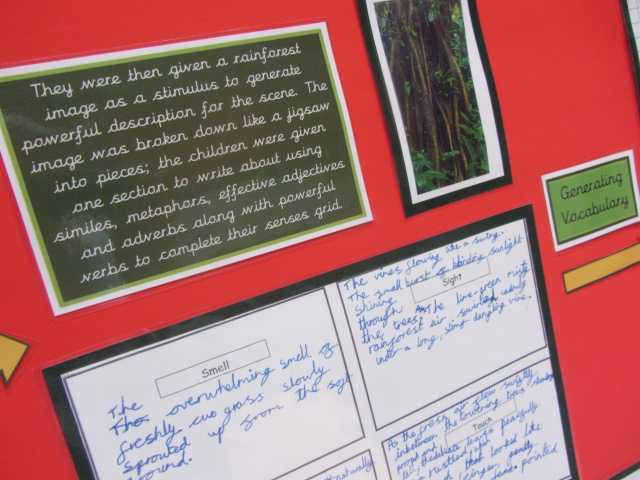 They were then given a rainforest
image as a stimulus to generate
powerful description for the scene. The
image was broken down like a jigsaw
into pieces; the children were given
one section to write about using
similes, metaphors, effective adjectives
and adverbs along with powerful
verbs to complete their senses grid.
Generating
Vocabulary
Smell
The overwhelming smell of
freshly cut grass slowly
sprouted up from the soft
ground.
Sight
The vines flowing like a swing.
The small burst of blinding sunlight
shining
through the trees. The lime-green misty
rainforest air swirled
under a long, slimy dangling vine.
Touch
As the cross air flow swiftly
inbetween the towering trees
rustled peacefully
that looked like
ginger, gently
pointed
naturally